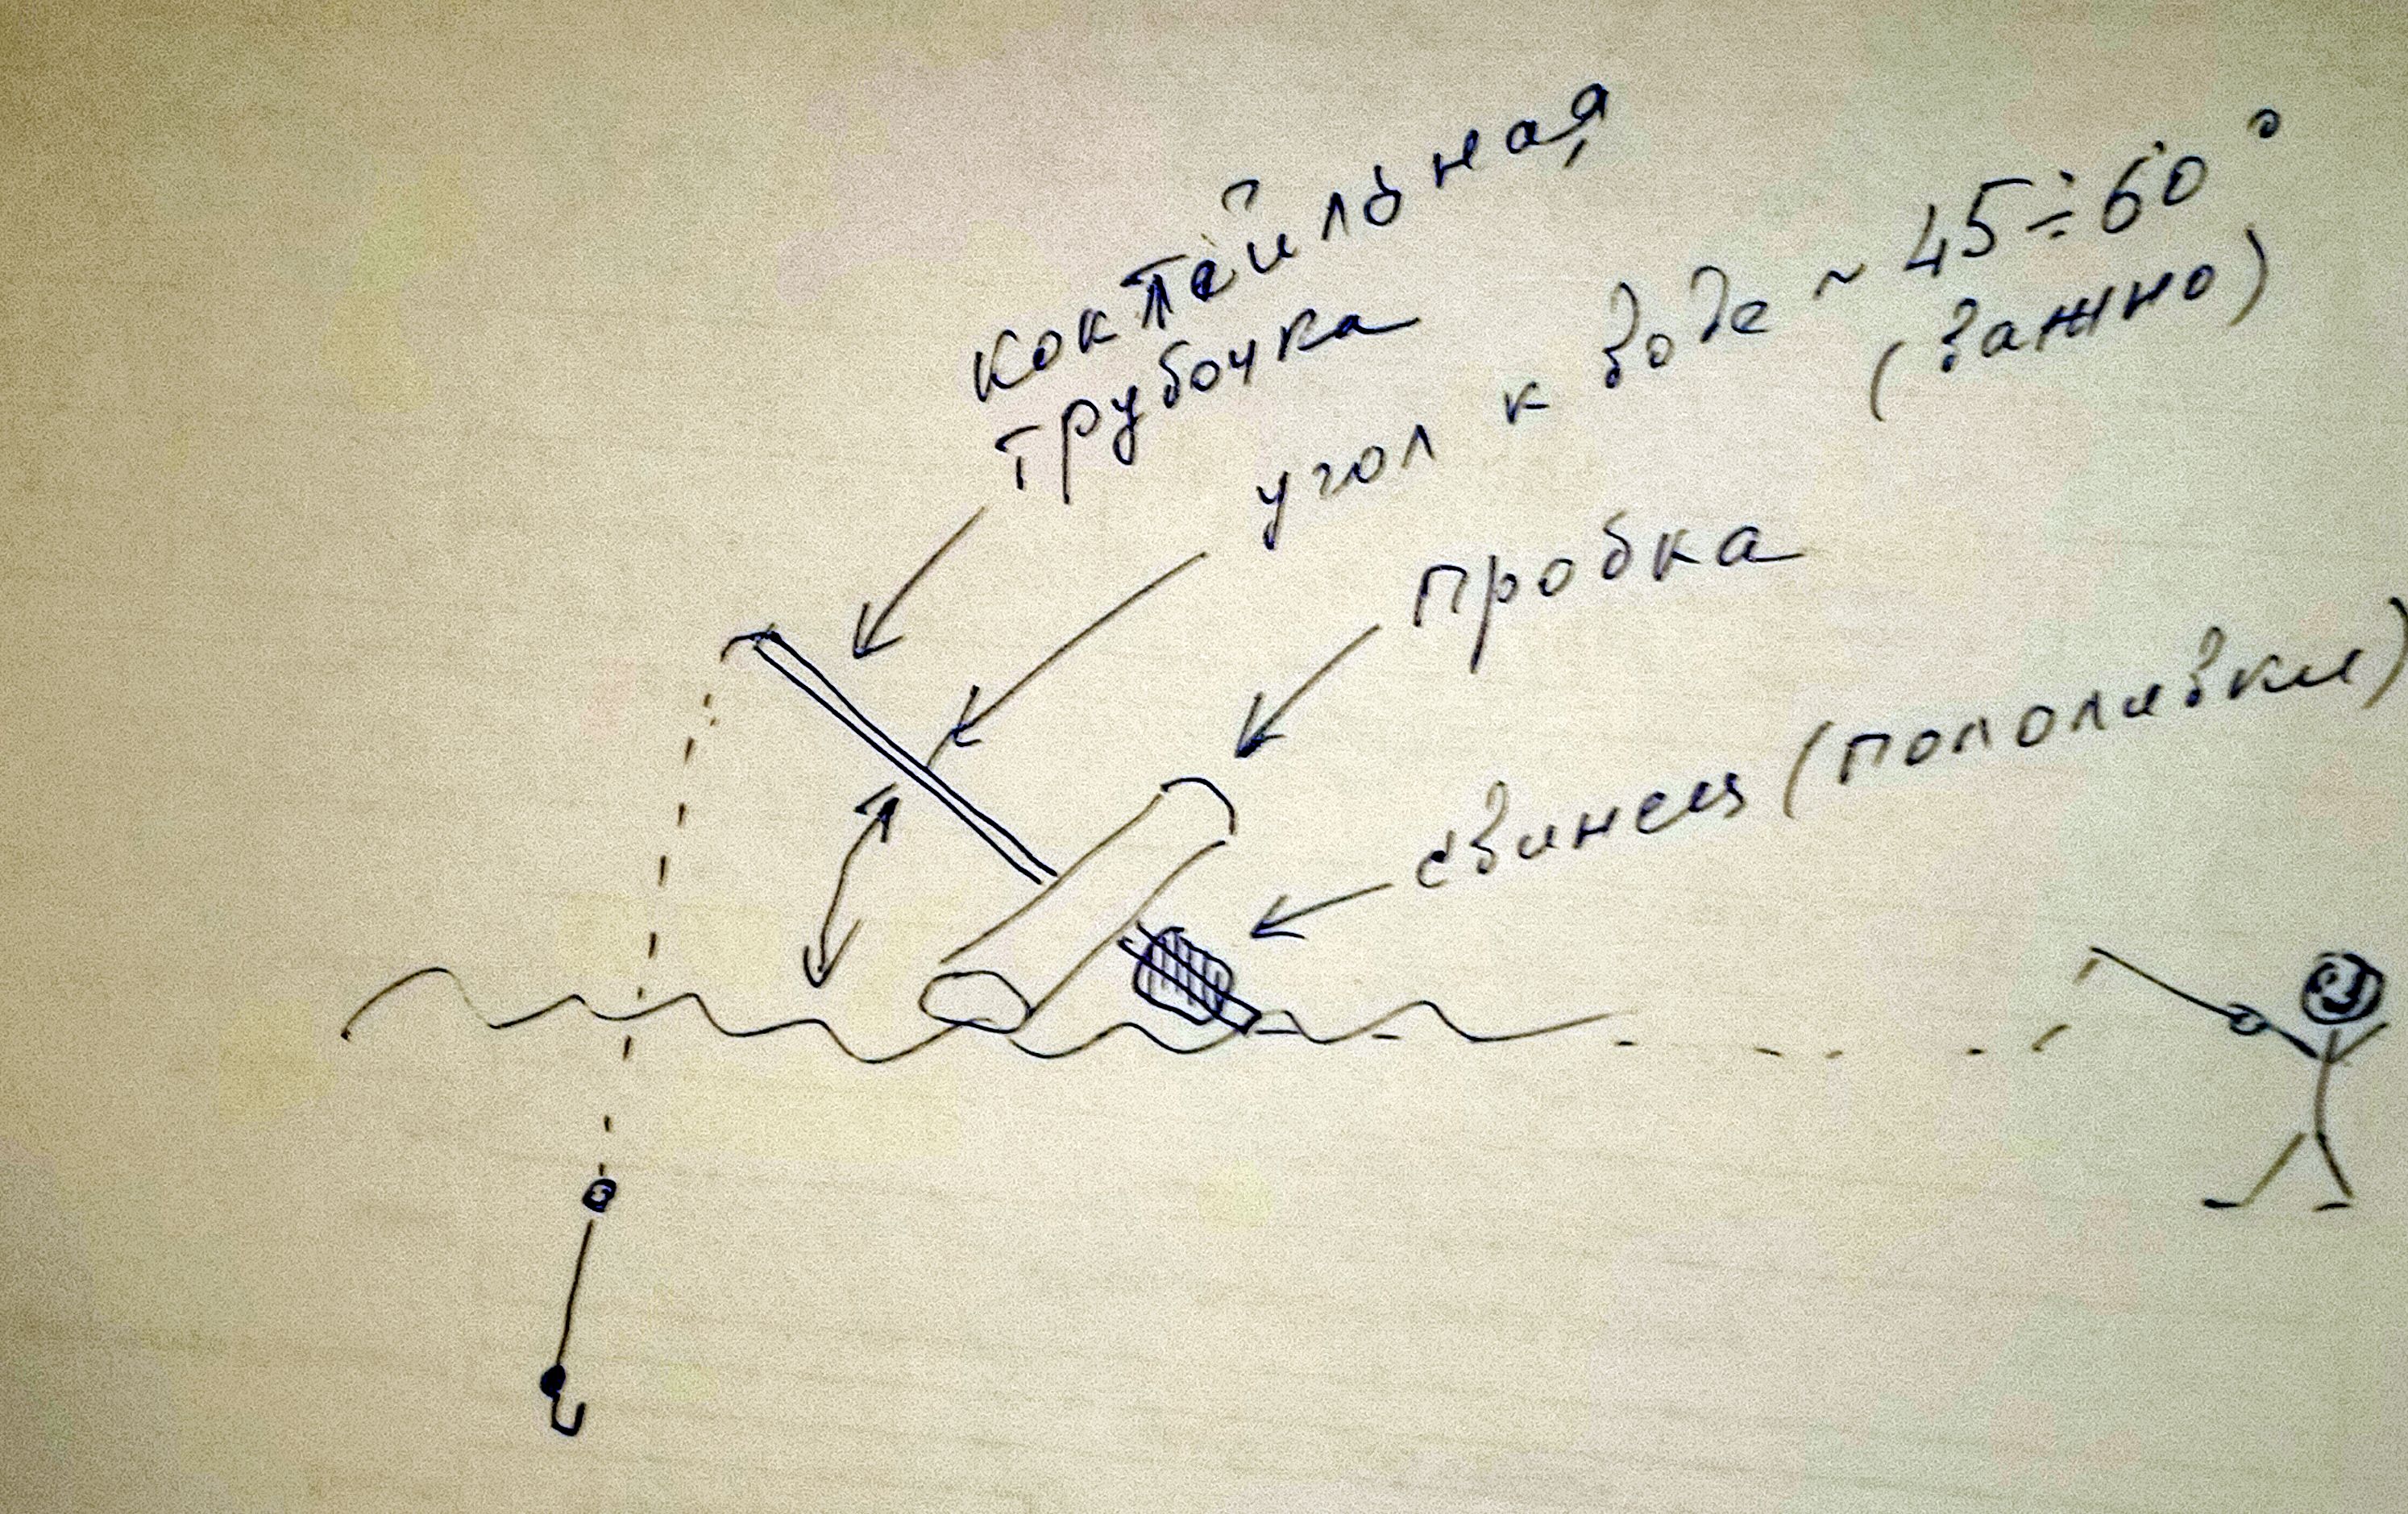 коктейльная
трубочка
угол к воде ~ 45÷60°
(важно)
пробка
свинец (пополивки)